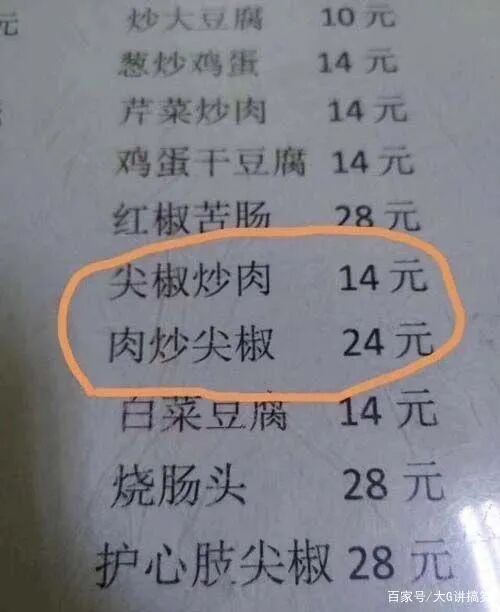 元
炒大豆腐 10 元
葱炒鸡蛋 14 元
芹菜炒肉 14 元
鸡蛋干豆腐 14 元
红椒苦肠 28 元
尖椒炒肉 14 元
肉炒尖椒 24 元
白菜豆腐 14 元
烧肠头 28 元
护心肢尖椒 28 元
百家号/大G讲搞笑